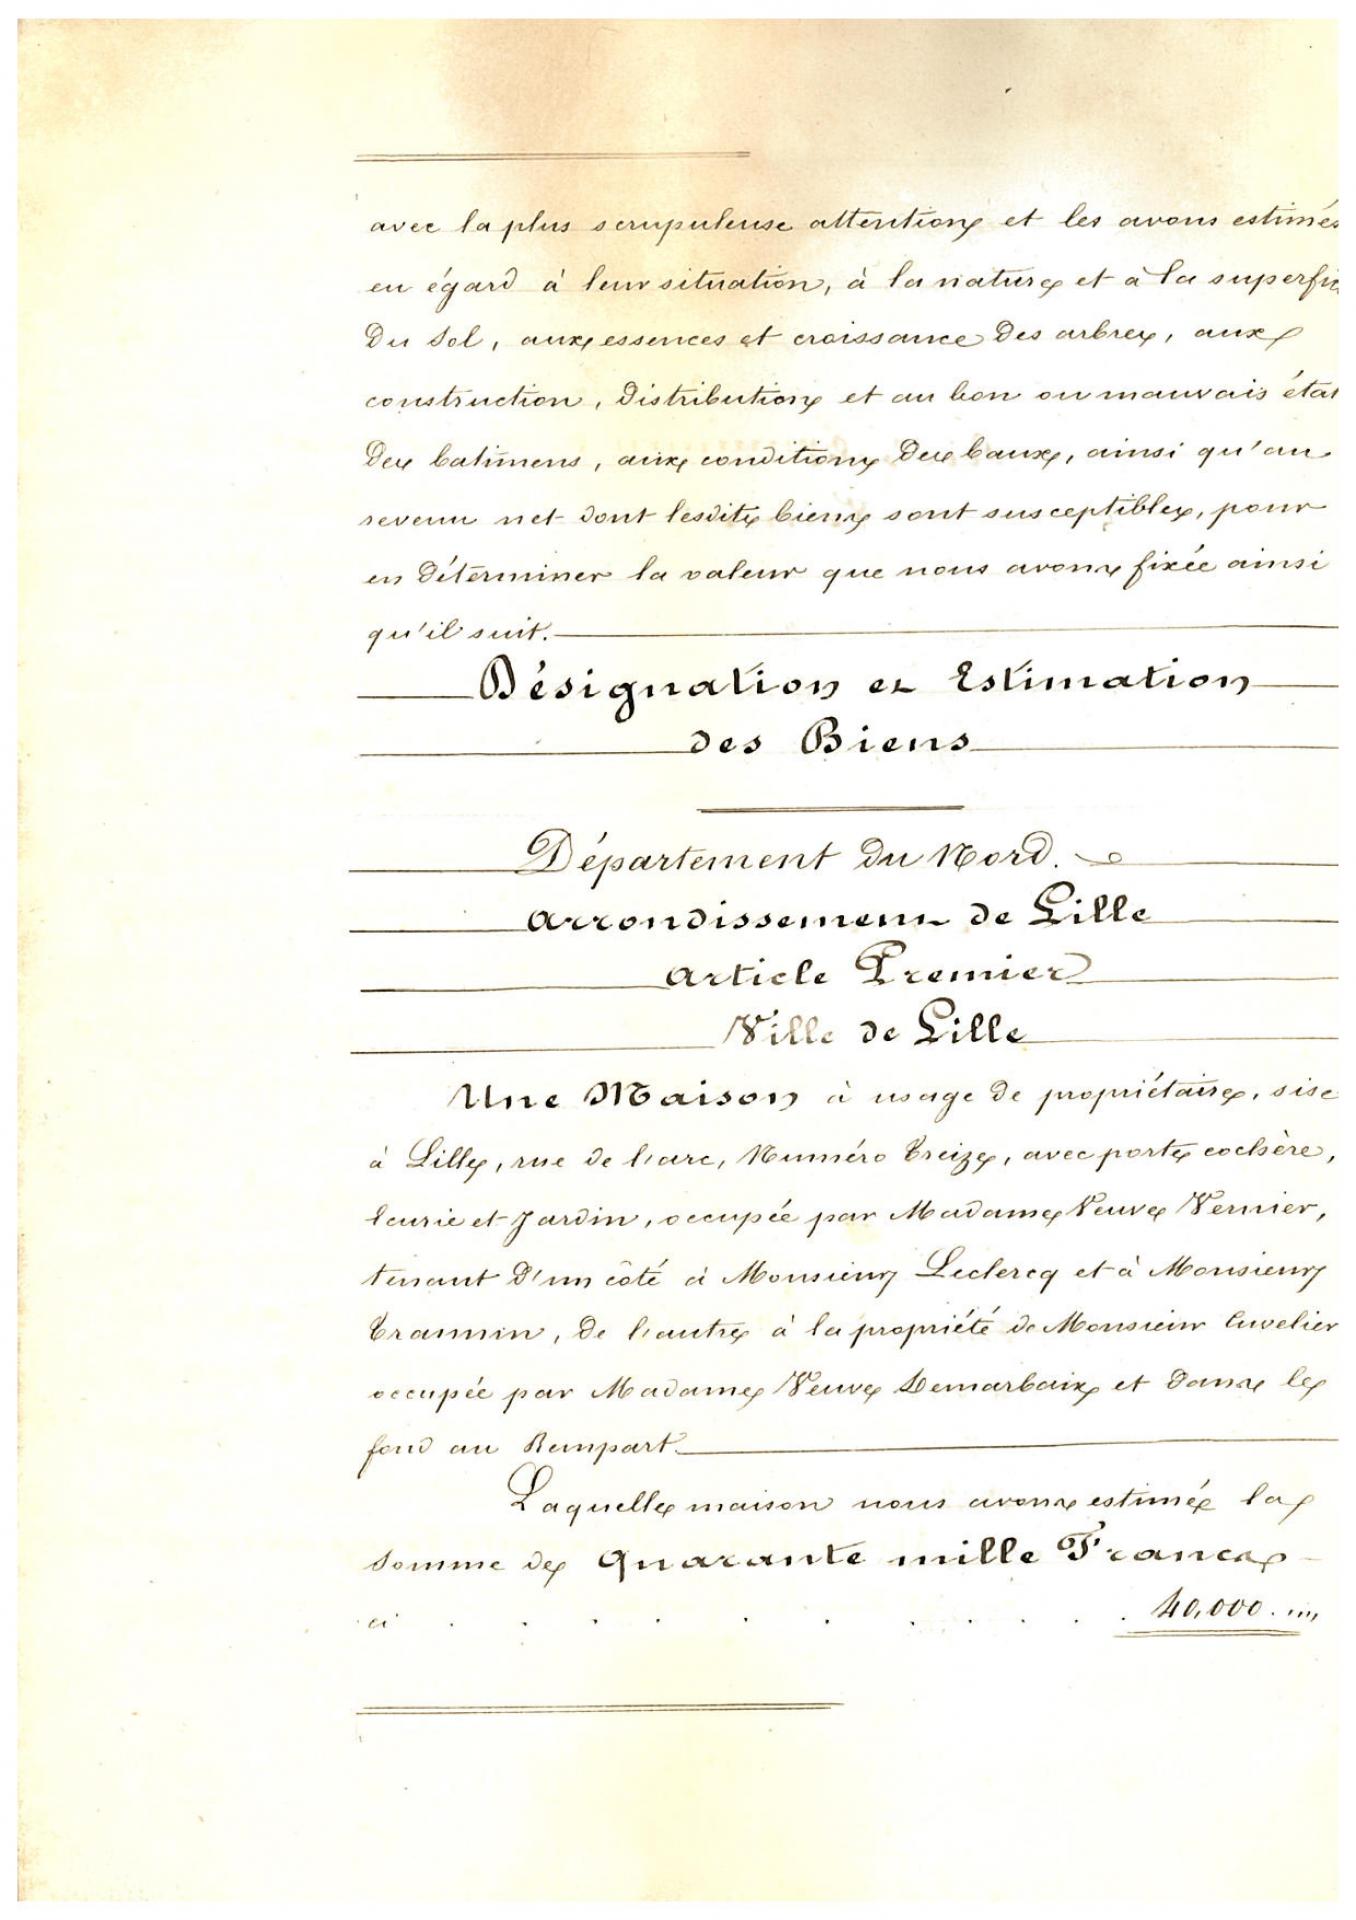 avec la plus scrupuleuse attention et les avons estimés
eu égard à leur situation, à la nature et à la superfic
du sol, aux essences et croissance des arbres, aux
construction, distribution et au bon ou mauvais état
des batimens, aux conditions des baux, ainsi qu'au
revenu net dont lesdits biens sont susceptibles, pour
en déterminer la valeur que nous avons fixée ainsi
qu'il suit.
Désignation et Estimation
des Biens
Département du Nord.
Arrondissement de Lille
Article Premier
Ville de Lille
Une Maison à usage de propriétaire, sise
à Lille, rue de l'arc, Numéro treize, avec porte cochère,
écurie et Jardin, occupée par Madame Veuve Vernier,
tenant d'un côté à Monsieur Leclercq et à Monsieur
Trannin, de l'autre à la propriété de Monsieur Cuvelier
occupée par Madame Veuve Demarbaix et dans le
fond au Rempart.
Laquelle maison nous avons estimée la
somme de Quarante mille Francs
ci . . . . . . . . . . 40,000. ,,,,